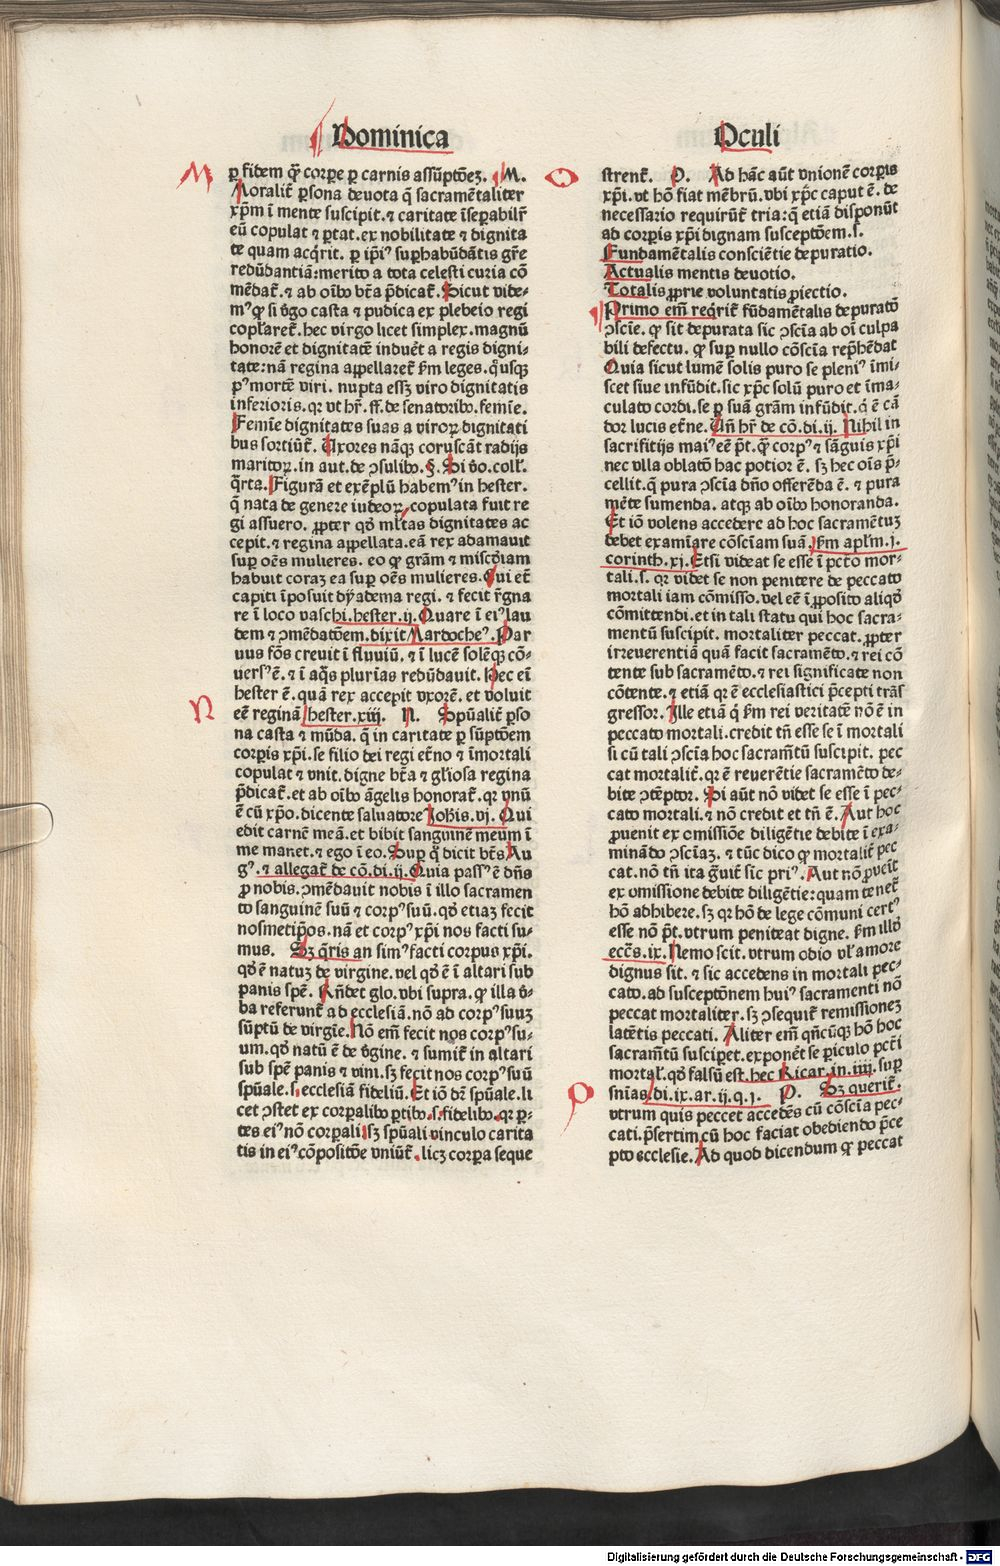 Dominica
ꝑ fidem ꝙ̄ corꝑe ꝑ carnis assūptōez. M.
Moralit̄ ꝑsona deuota q̄ sacramētaliter
xp̄m ī mente suscipit. ⁊ caritate īseꝑabilr̄
eū copulat ⁊ ꝑtat. ex nobilitate ⁊ dignita
te quam acq̄rit. ꝑ ip̄iꝰ suꝑhabūdātis gr̄e
redūdantiā: merito a tota celesti curia cō
mēdat̄. ⁊ ab oībꝰ bt̄a p̄dicat̄. Sicut vide-
mꝰ ꝙ si v̄go casta ⁊ pudica ex plebeio regi
copl̄aret̄. hec virgo licet simplex. magnū
honorē et dignitatē induēt a regis digni-
tate: nā regina appellaret̄ ẜm leges. q̄usqꝫ
pꝰ mortē viri. nupta essꝫ viro dignitatis
inferioris. qꝛ vt hr̄. ff. de senatoribꝰ. femīe.
Femīe dignitates suas a viroꝝ dignitati
bus sortiūt̄. Uxores nāqꝫ coruscāt radijs
maritoꝝ. in aut. de ꝯsulibꝰ. §. Si v̄o. coll̄.
q̄rta. Figurā et exēplū habemꝰ in hester.
q̄ nata de genere iudeoꝝ, copulata fuit re
gi assuero. ꝓpter qd̄ ml̄tas dignitates ac
cepit. ⁊ regina appellata. eā rex adamauit
suꝑ oēs mulieres. eo ꝙ grām ⁊ mīscd̄iam
habuit coraꝫ ea suꝑ oēs mulieres. Qui et̄
capiti īposuit dyadema regi. ⁊ fecit r̄gna
re ī loco vaschi. hester. ij. Quare ī eiꝰ lau
dem ⁊ ꝯmēdatōem. dixit Mardocheꝰ. Par
uus fōs creuit ī fluuiū. ⁊ ī lucē solēqꝫ cō-
uersꝰ ē. ⁊ ī aq̄s plurīas redūdauit. Hec eī
hester ē. quā rex accepit vxorē. et voluit
eē reginā hester. xiij. N. Spūalit̄ ꝑso
na casta ⁊ mūda. q̄ in caritate ꝑ sūptōem
corꝑis xp̄i. se filio dei regi et̄no ⁊ īmortali
copulat ⁊ vnit. digne bt̄a ⁊ gl̄iosa regina
p̄dicat̄. et ab oībꝰ āgelis honorat̄. qꝛ vnū
ē cū xp̄o. dicente saluatore Joh̄is. vj. Qui
edit carnē meā. et bibit sanguinē meum ī
me manet. ⁊ ego ī eo. Suꝑ q̄ dicit bt̄s Au
gꝰ. ⁊ allegat̄ de cō. di. ij. Quia passꝰ ē dn̄s
ꝓ nobis. ꝯmēdauit nobis ī illo sacramen
to sanguinē suū ⁊ corpꝰ suū. qd̄ etiaꝫ fecit
nosmetip̄os. nā et corpꝰ xp̄i nos facti su-
mus. Sꝫ q̄ris an simꝰ facti corpus xp̄i.
qd̄ ē natuꝫ de virgine. vel qd̄ ē ī altari sub
panis spē. Rn̄det glo. vbi supra. ꝙ illa v̄-
ba referunt̄ ad ecclesiā. nō ad corpꝰ suuꝫ
sūptū de virgīe. Nō em̄ fecit nos corpꝰ su-
um. qd̄ natū ē de v̄gine. ⁊ sumit̄ in altari
sub spē panis ⁊ vini. sꝫ fecit nos corpꝰ suū
spūale. s. ecclesiā fideliū. Et iō dr̄ spūale. li
cet ꝯstet ex corꝑalibꝰ ꝑtibꝰ. s. fidelibꝰ. qꝛ ꝑ-
tes eiꝰ nō corꝑali. sꝫ spūali vinculo carita
tis in eiꝰ cōpositōe vniūt̄. licꝫ corꝑa seque
Oculi
strent̄. O. Ad hāc aūt vnionē corꝑis
xp̄i. vt hō fiat mēbrū. vbi xp̄c caput ē. de
necessario requirūt̄ tria: q̄ etiā disponūt
ad corꝑis xp̄i dignam susceptōem. s.
Fundamētalis conscīētie depuratio.
Actualis mentis deuotio.
Totalis ꝓprie voluntatis ꝓiectio.
Primo em̄ req̄rit̄ fūdamētalis depuratō
ꝯscīe. ꝙ sit depurata sic ꝯscīa ab oī culpa
bili defectu. ꝙ suꝑ nullo cōscīa rep̄hēdat
Quia sicut lumē solis puro se pleniꝰ īmi-
scet siue infūdit. sic xp̄c solū puro et īma-
culato cordi. se ꝑ suā grām infūdit. q̄ ē cā
dor lucis et̄ne. Un̄ hr̄ de cō. di. ij. Nihil in
sacrifitijs maiꝰ eē p̄t. ꝙ̄ corpꝰ ⁊ sāguis xp̄i
nec vlla oblatō hac potior ē. sꝫ hec oīs p̄-
cellit. q̄ pura ꝯscīa dn̄o offerēda ē. ⁊ pura
mēte sumenda. atqꝫ ab oībꝰ honoranda.
Et iō volens accedere ad hoc sacramētuꝫ
debet examīare cōscīam suā. ẜm apl̄m. j.
corinth. xj. Etsi videat se esse ī pctō mor-
tali. s. qꝛ videt se non penitere de peccato
mortali iam cōmisso. vel eē ī ꝓposito aliqd̄
cōmittendi. et in tali statu qui hoc sacra-
mentū suscipit. mortaliter peccat. ꝓpter
irreuerentiā quā facit sacramēto. ⁊ rei cō
tente sub sacramēto. ⁊ rei significate non
cōtente. ⁊ etiā qꝛ ē ecclesiastici p̄cepti trās
gressor. Ille etiā q̄ ẜm rei veritatē nō ē in
peccato mortali. credit tn̄ esse se ī mortali
si cū tali ꝯscīa hoc sacram̄tū suscipit. pec
cat mortalit̄. qꝛ ē reuerētie sacramēto de-
bite ꝯtēptor. Si aūt nō videt se esse ī pec-
cato mortali. ⁊ nō credit et tn̄ ē. Aut hoc
ꝓuenit ex omissiōe diligētie debite ī exa-
minādo ꝯscīaꝫ. ⁊ tūc dico ꝙ mortalit̄ pec
cat. nō tn̄ ita g̊uit̄ sic priꝰ. Aut nō ꝓueīt
ex omissione debite diligētie: quam tenet̄
hō adhibere. sꝫ qꝛ hō de lege cōmuni certꝰ
esse nō p̄t. vtrum peniteat digne. ẜm illd̄
eccs̄. ix. Nemo scit. vtrum odio vl̄ amore
dignus sit. ⁊ sic accedens in mortali pec-
cato. ad susceptōnem huiꝰ sacramenti nō
peccat mortaliter. sꝫ ꝯsequit̄ remissioneꝫ
latētis peccati. Aliter em̄ qn̄cūqꝫ hō hoc
sacram̄tū susciꝑet. exponēt se ꝑiculo pct̄i
mortal̄. qd̄ falsū est. hec Ricar. in. iiij. suꝑ
sn̄ias. di. ix. ar. ij. q. j. P. Sꝫ querit̄.
vtrum quis peccet accedēs cū cōscīa pec-
cati. p̄sertim cū hoc faciat obediendo p̄ce
pto ecclesie. Ad quod dicendum ꝙ peccat
M
N
O
P
Digitalisierung gefördert durch die Deutsche Forschungsgemeinschaft - DFG